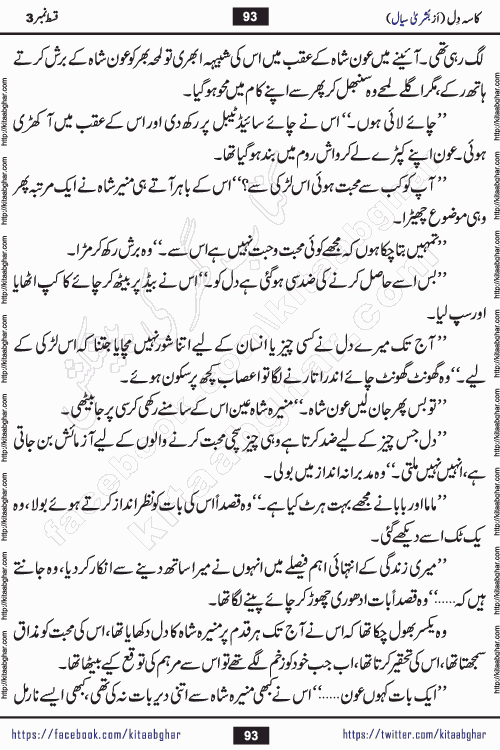 کاسہ دل (از بشریٰ سیال)
93
قسط نمبر 3
لگ رہی تھی۔ آئینے میں عون شاہ کے عقب میں اس کی شبیہہ ابھری تو لمحہ بھر کو عون شاہ کے برش کرتے
ہاتھ رکے، مگر اگلے لمحے وہ سنبھل کر پھر سے اپنے کام میں محو ہو گیا۔
”چائے لائی ہوں۔“ اس نے چائے سائیڈ ٹیبل پر رکھ دی اور اس کے عقب میں آ کھڑی
ہوئی۔ عون اپنے کپڑے لے کر واش روم میں بند ہو گیا تھا۔
”آپ کو کب سے محبت ہوئی اس لڑکی سے؟“ اس کے باہر آتے ہی منیر شاہ نے ایک مرتبہ پھر
وہی موضوع چھیڑا۔
”تمہیں بتا چکا ہوں کہ مجھے کوئی محبت وحبت نہیں ہے اس سے۔“ وہ برش رکھ کر مڑا۔
”بس اسے حاصل کرنے کی ضد سی ہو گئی ہے دل کو۔“ اس نے بیڈ پر بیٹھ کر چائے کا کپ اٹھایا
اور سپ لیا۔
”آج تک میرے دل نے کسی چیز یا انسان کے لیے اتنا شور نہیں مچایا جتنا کہ اس لڑکی کے
لیے۔“ وہ گھونٹ گھونٹ چائے اندر اتارنے لگا تو اعصاب کچھ پرسکون ہوئے۔
”تو بس پھر جان لیں عون شاہ۔“ منیرہ شاہ عین اس کے سامنے رکھی کرسی پر جا بیٹھی۔
”دل جس چیز کے لیے ضد کرتا ہے وہی چیز سچی محبت کرنے والوں کے لیے آزمائش بن جاتی
ہے، انہیں نہیں ملتی۔“ وہ مدبرانہ انداز میں بولی۔
”ماما اور بابا نے مجھے بہت ہرٹ کیا ہے۔“ وہ قصداً اس کی بات کو نظر انداز کرتے ہوئے بولا، وہ
یک ٹک اسے دیکھے گئی۔
”میری زندگی کے انتہائی اہم فیصلے میں انہوں نے میرا ساتھ دینے سے انکار کر دیا، وہ جانتے
ہیں کہ......“ وہ قصداً بات ادھوری چھوڑ کر چائے پینے لگا تھا۔
وہ یکسر بھول چکا تھا کہ اس نے آج تک ہر قدم پر منیرہ شاہ کا دل دکھایا تھا، اس کی محبت کو مذاق
سمجھتا تھا، اس کی تحقیر کرتا تھا، اب جب خود کو زخم لگے تھے تو اس سے مرہم کی توقع کیے بیٹھا تھا۔
”ایک بات کہوں عون......“ اس نے کبھی منیرہ شاہ سے اتنی دیر بات نہ کی تھی، کبھی ایسے نارمل
https://facebook.com/kitaabghar
93
https://twitter.com/kitaabghar
http://kitaabghar.com